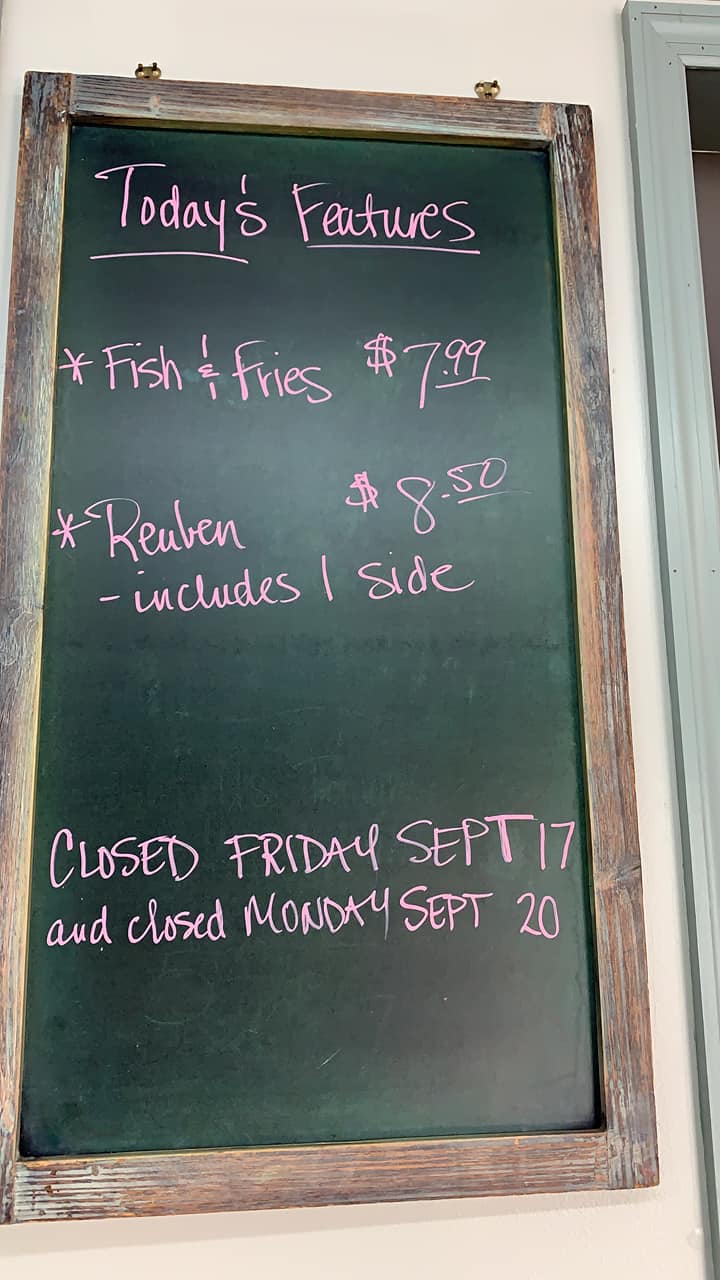 Today's Features
* Fish & Fries $7.99
* Reuben $8.50
- includes 1 side
CLOSED FRIDAY SEPT 17
and closed MONDAY SEPT 20